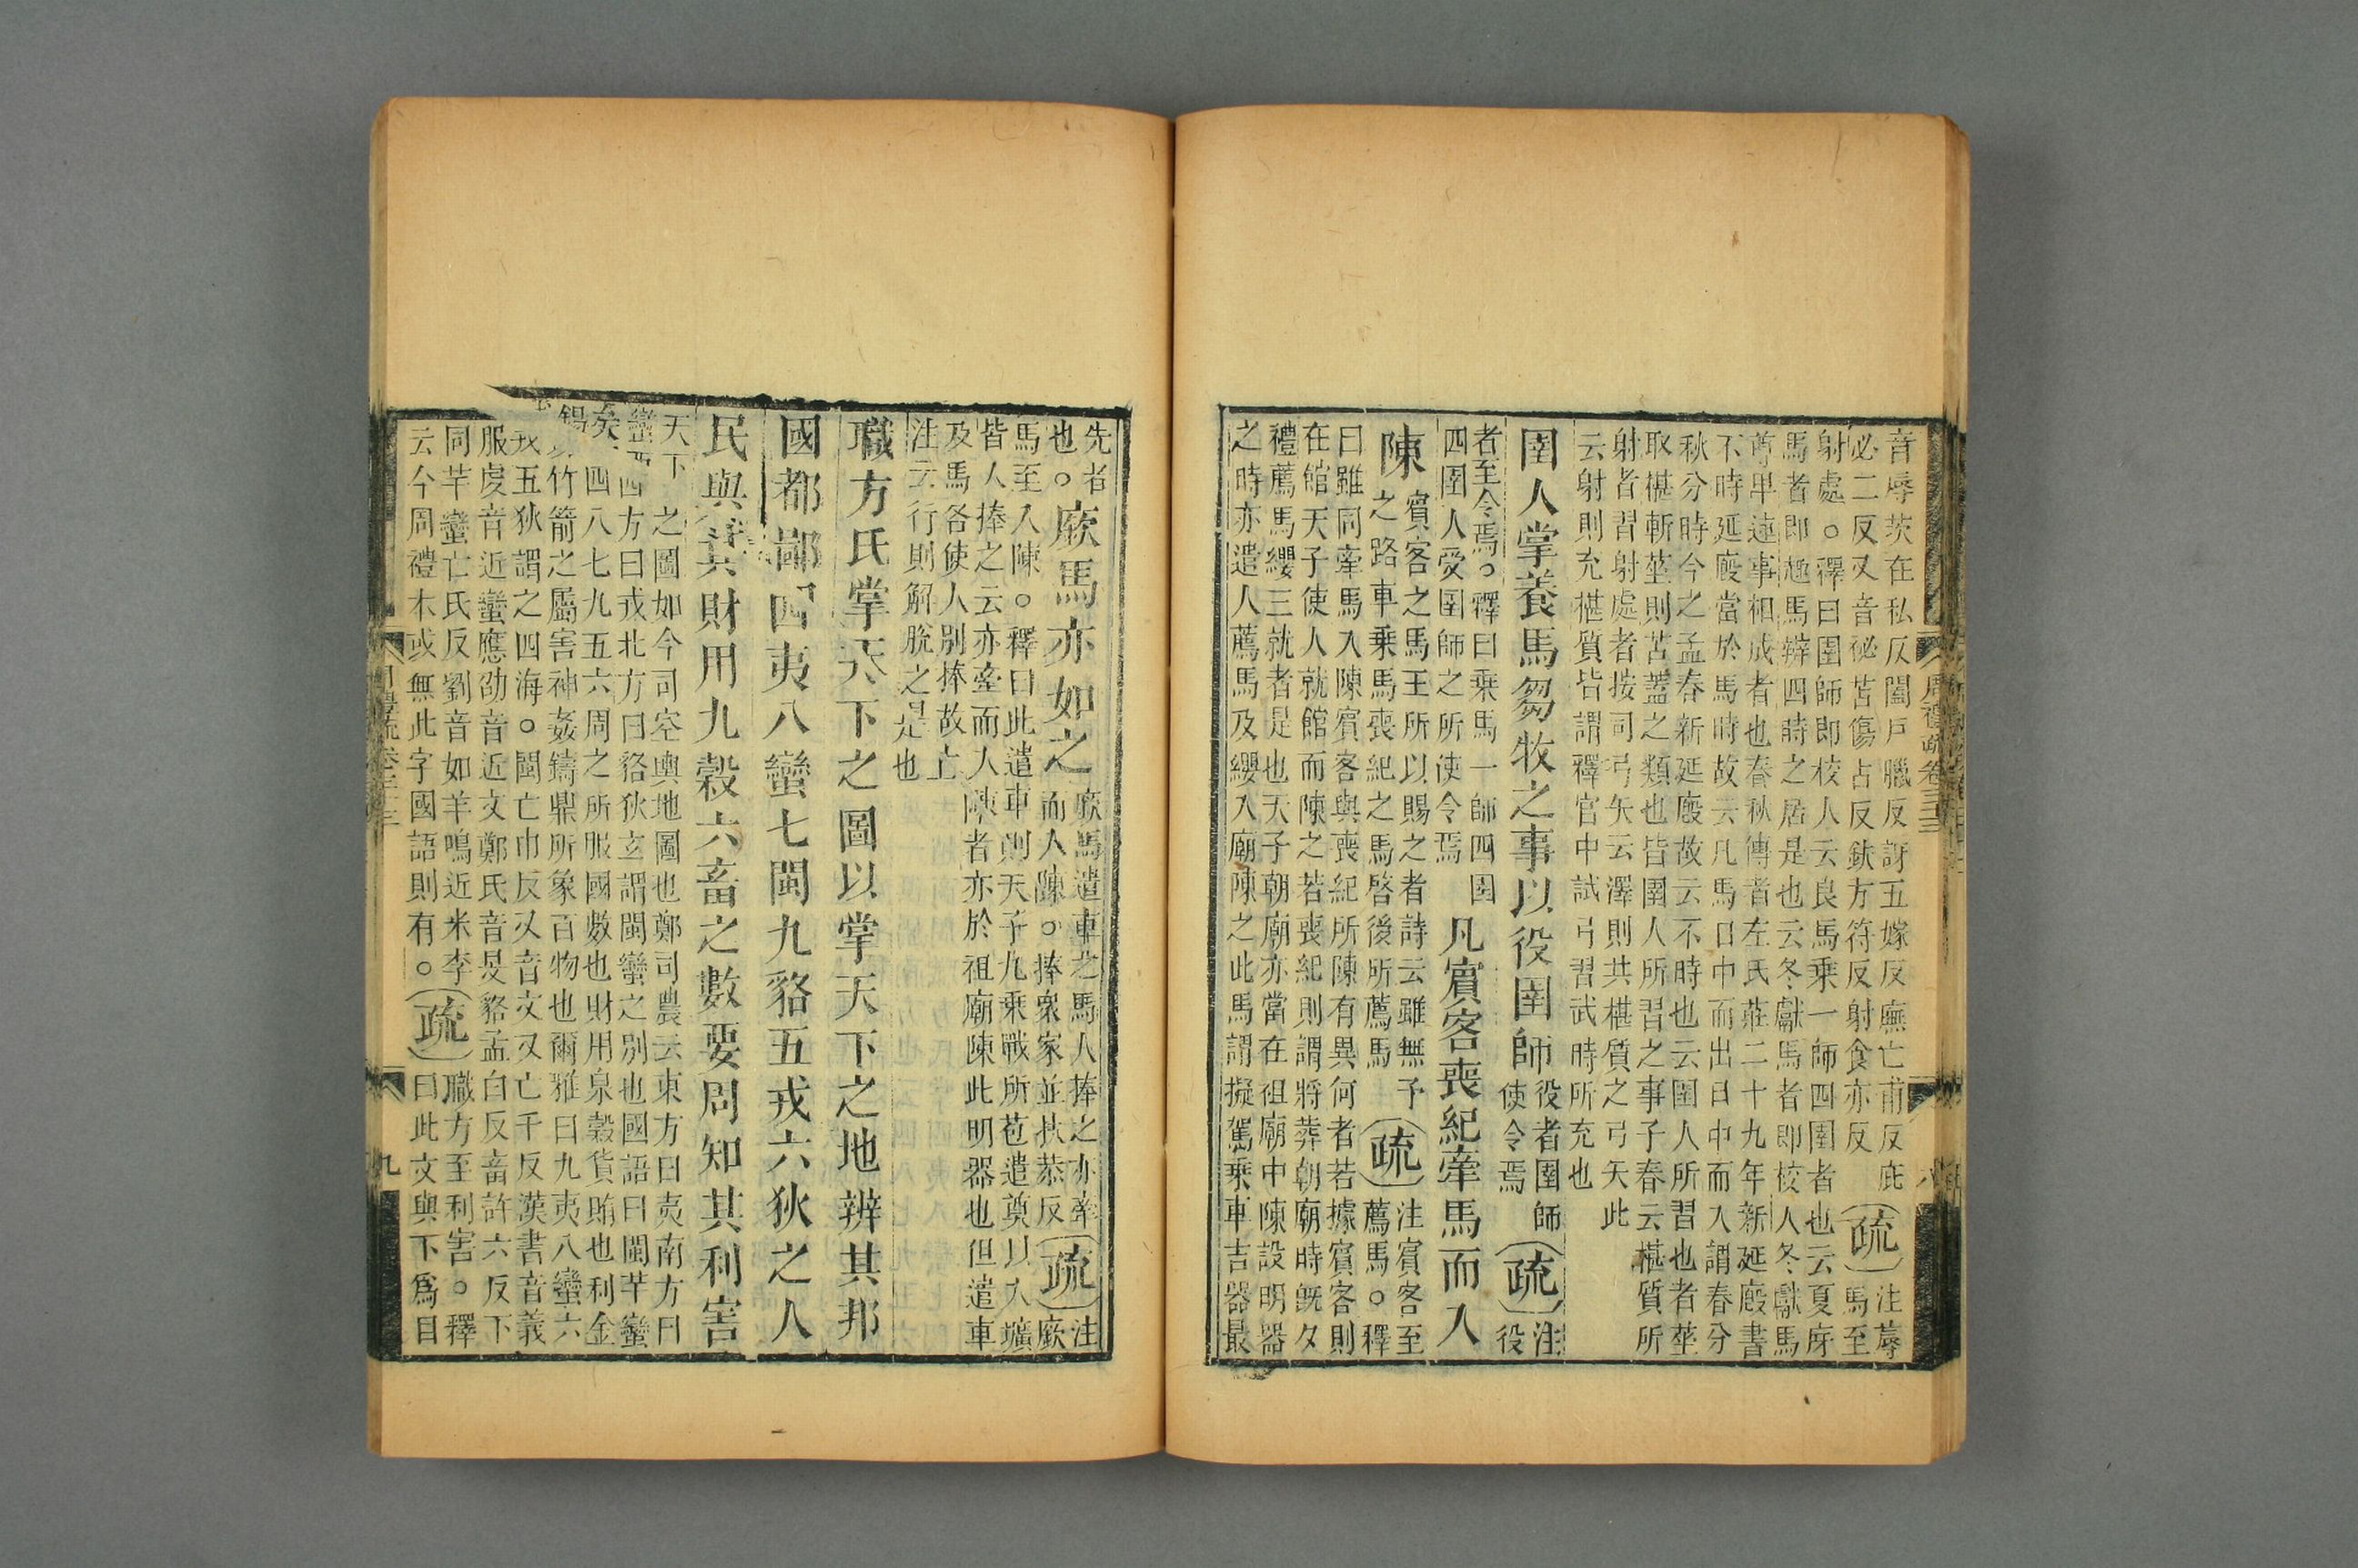 音辱茨在私反闔戶臘反訝五嫁反廡亡甫反庇
必二反又音祕苫傷占反鈇方符反射食亦反
疏
注蓐
馬至
射處。釋曰圉師即校人云良馬乘一師四圉者也云夏庌
馬者即趣馬辨四時之居是也云冬獻馬者即校人冬獻馬
尊卑連事相成者也春秋傳者左氏莊二十九年新延廄書
不時延廄當於馬時故云凡馬日中而出日中而入謂春分
秋分時今之孟春新延廄故云不時也云圉人所習也者莝
取椹斬莝則苫蓋之類也皆圉人所習之事子春云椹質所
射者習射處者按司弓矢云澤則共椹質之弓矢此
云射則充椹質皆謂擇官中試弓習武時所充也
圉人掌養馬芻牧之事以役圉師
役者圉師
使令焉
疏
注
役
者至令焉。釋曰乘馬一師四圉
四圉人受圉師之所使令焉
凡賓客喪紀牽馬而入
陳
賓客之馬王所以賜之者詩云雖無予
之路車乘馬喪紀之馬啓後所薦馬
疏
注賓客至
薦馬。釋
曰雖同牽馬入陳賓客與喪紀所陳有異何者若據賓客則
在館天子使人就館而陳之若喪紀則謂將葬朝廟時旣夕
禮薦馬纓三就者是也天子朝廟亦當在祖廟中陳設明器
之時亦遣人薦馬及纓入廟陳之此馬謂擬駕乘車吉器最
先者
也。
廞馬亦如之
廞馬遣車之馬人捧之亦牽
而入陳。捧衆家並扶恭反
疏
注
廞
馬至入陳。釋曰此遣車則天子九乘戰所苞遣奠以入壙
皆人捧之云亦牽而入陳者亦於祖廟陳此明器也但遣車
及馬各使人別捧故上
注云行則解脫之是也
職方氏掌天下之圖以掌天下之地辨其邦
國都鄙四夷八蠻七閩九貉五戎六狄之人
民與其財用九穀六畜之數要周知其利害
天下之圖如今司空輿地圖也鄭司農云東方曰夷南方曰
蠻西方曰戎北方曰貉狄玄謂閩蠻之別也國語曰閩芈蠻
矣四八七九五六周之所服國數也財用泉穀貨賄也利金
錫竹箭之屬害神姦鑄鼎所象百物也爾雅曰九夷八蠻六
戎五狄謂之四海。閩亡巾反又音文又亡千反漢書音義
服虔音近蠻應劭音近文鄭氏音旻貉孟白反畜許六反下
同芈蠻亡氏反劉音如羊鳴近米李
云今周禮本或無此字國語則有。
疏
職方至利害。釋
曰此文與下爲目
周禮疏卷三十三
八
周禮疏卷三十三
九